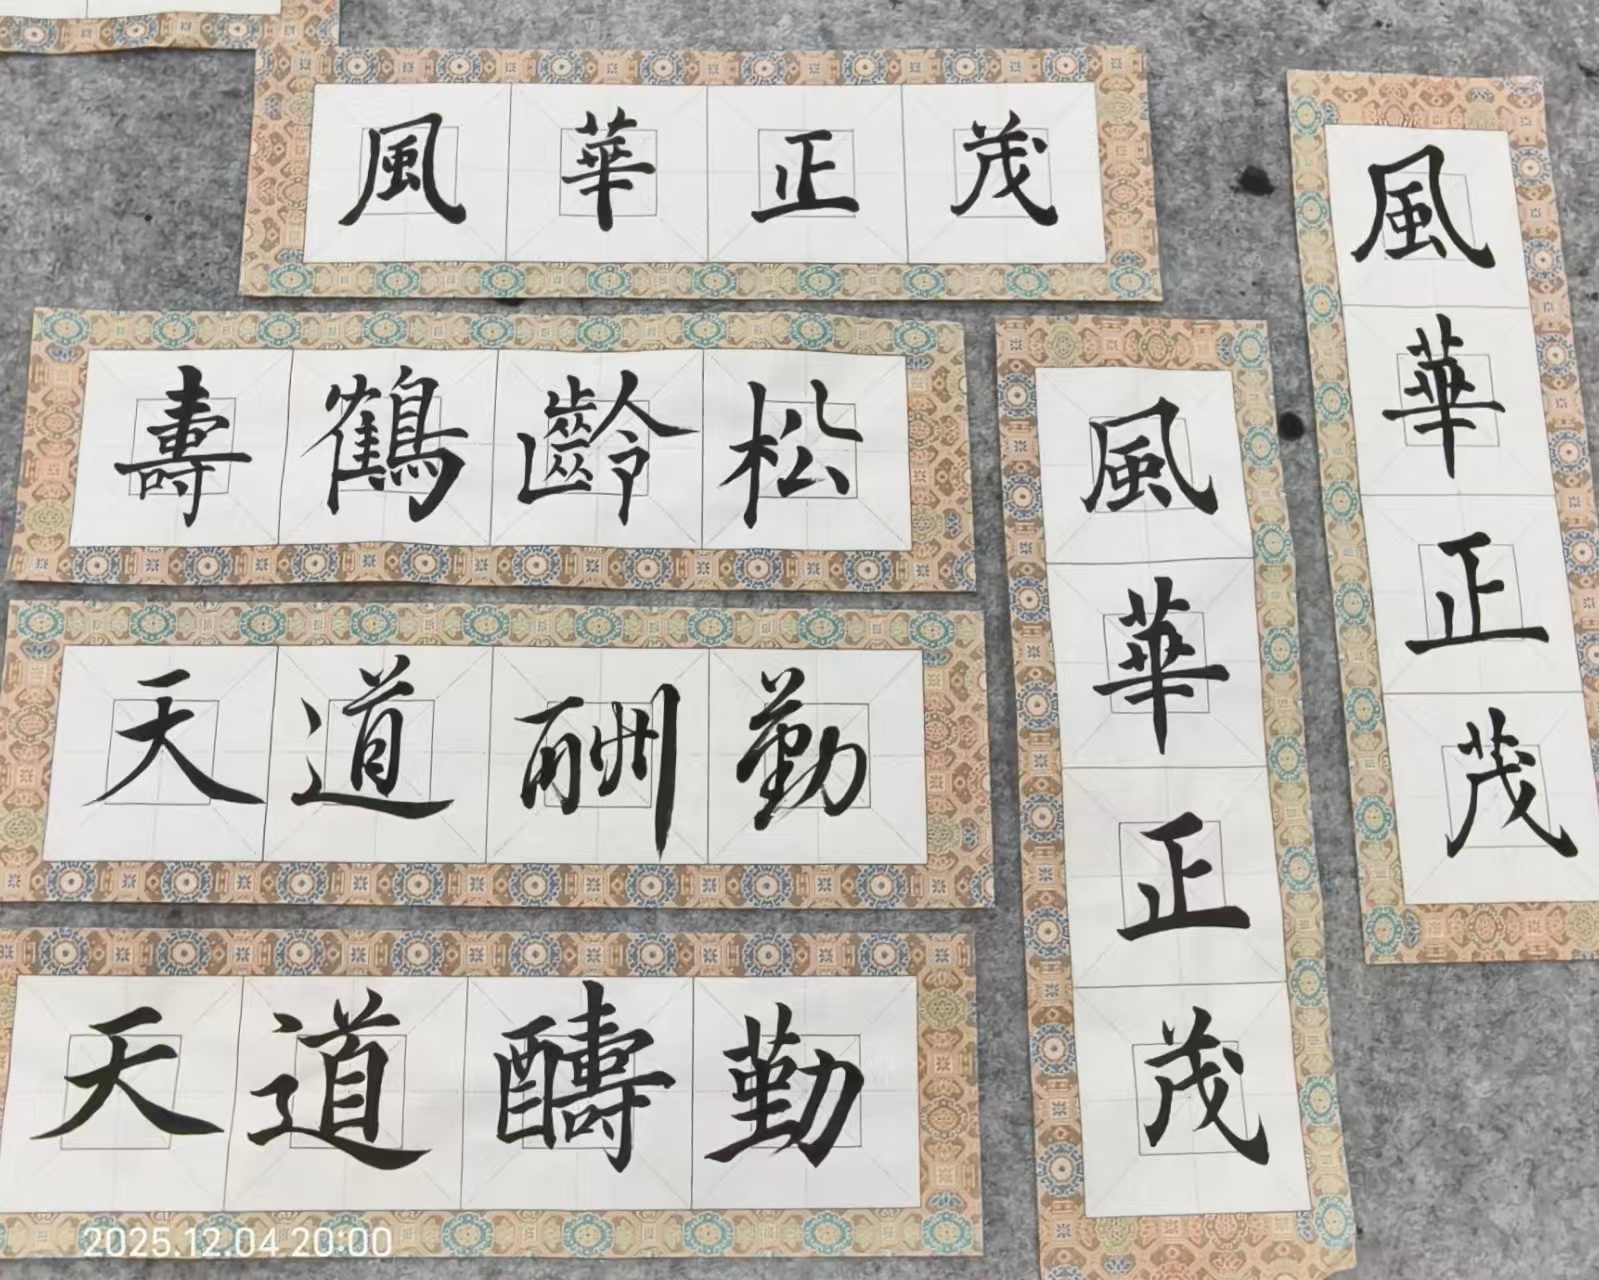 風華正茂
壽鶴齡松
天道酬勤
天道醻勤
風華正茂
風華正茂
2025.12.04 20:00